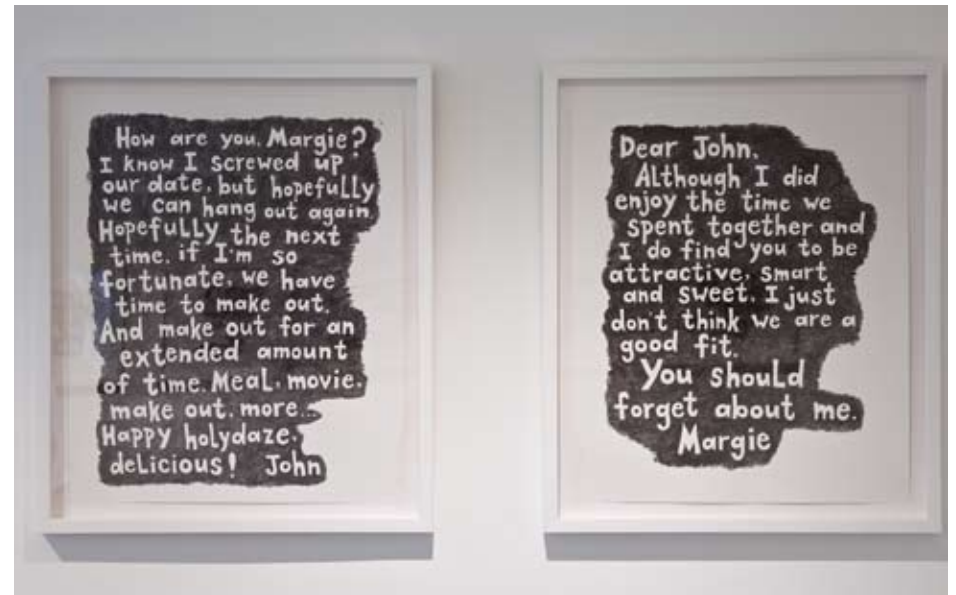 How are you, Margie?
I know I screwed up
our date, but hopefully
we can hang out again.
Hopefully the next
time, if I'm so
fortunate, we have
time to make out.
And make out for an
extended amount
of time. Meal, movie,
make out, more...
Happy holydaze,
delicious! John
Dear John,
Although I did
enjoy the time we
spent together and
I do find you to be
attractive, smart
and sweet, I just
don't think we are a
good fit.
You should
forget about me.
Margie